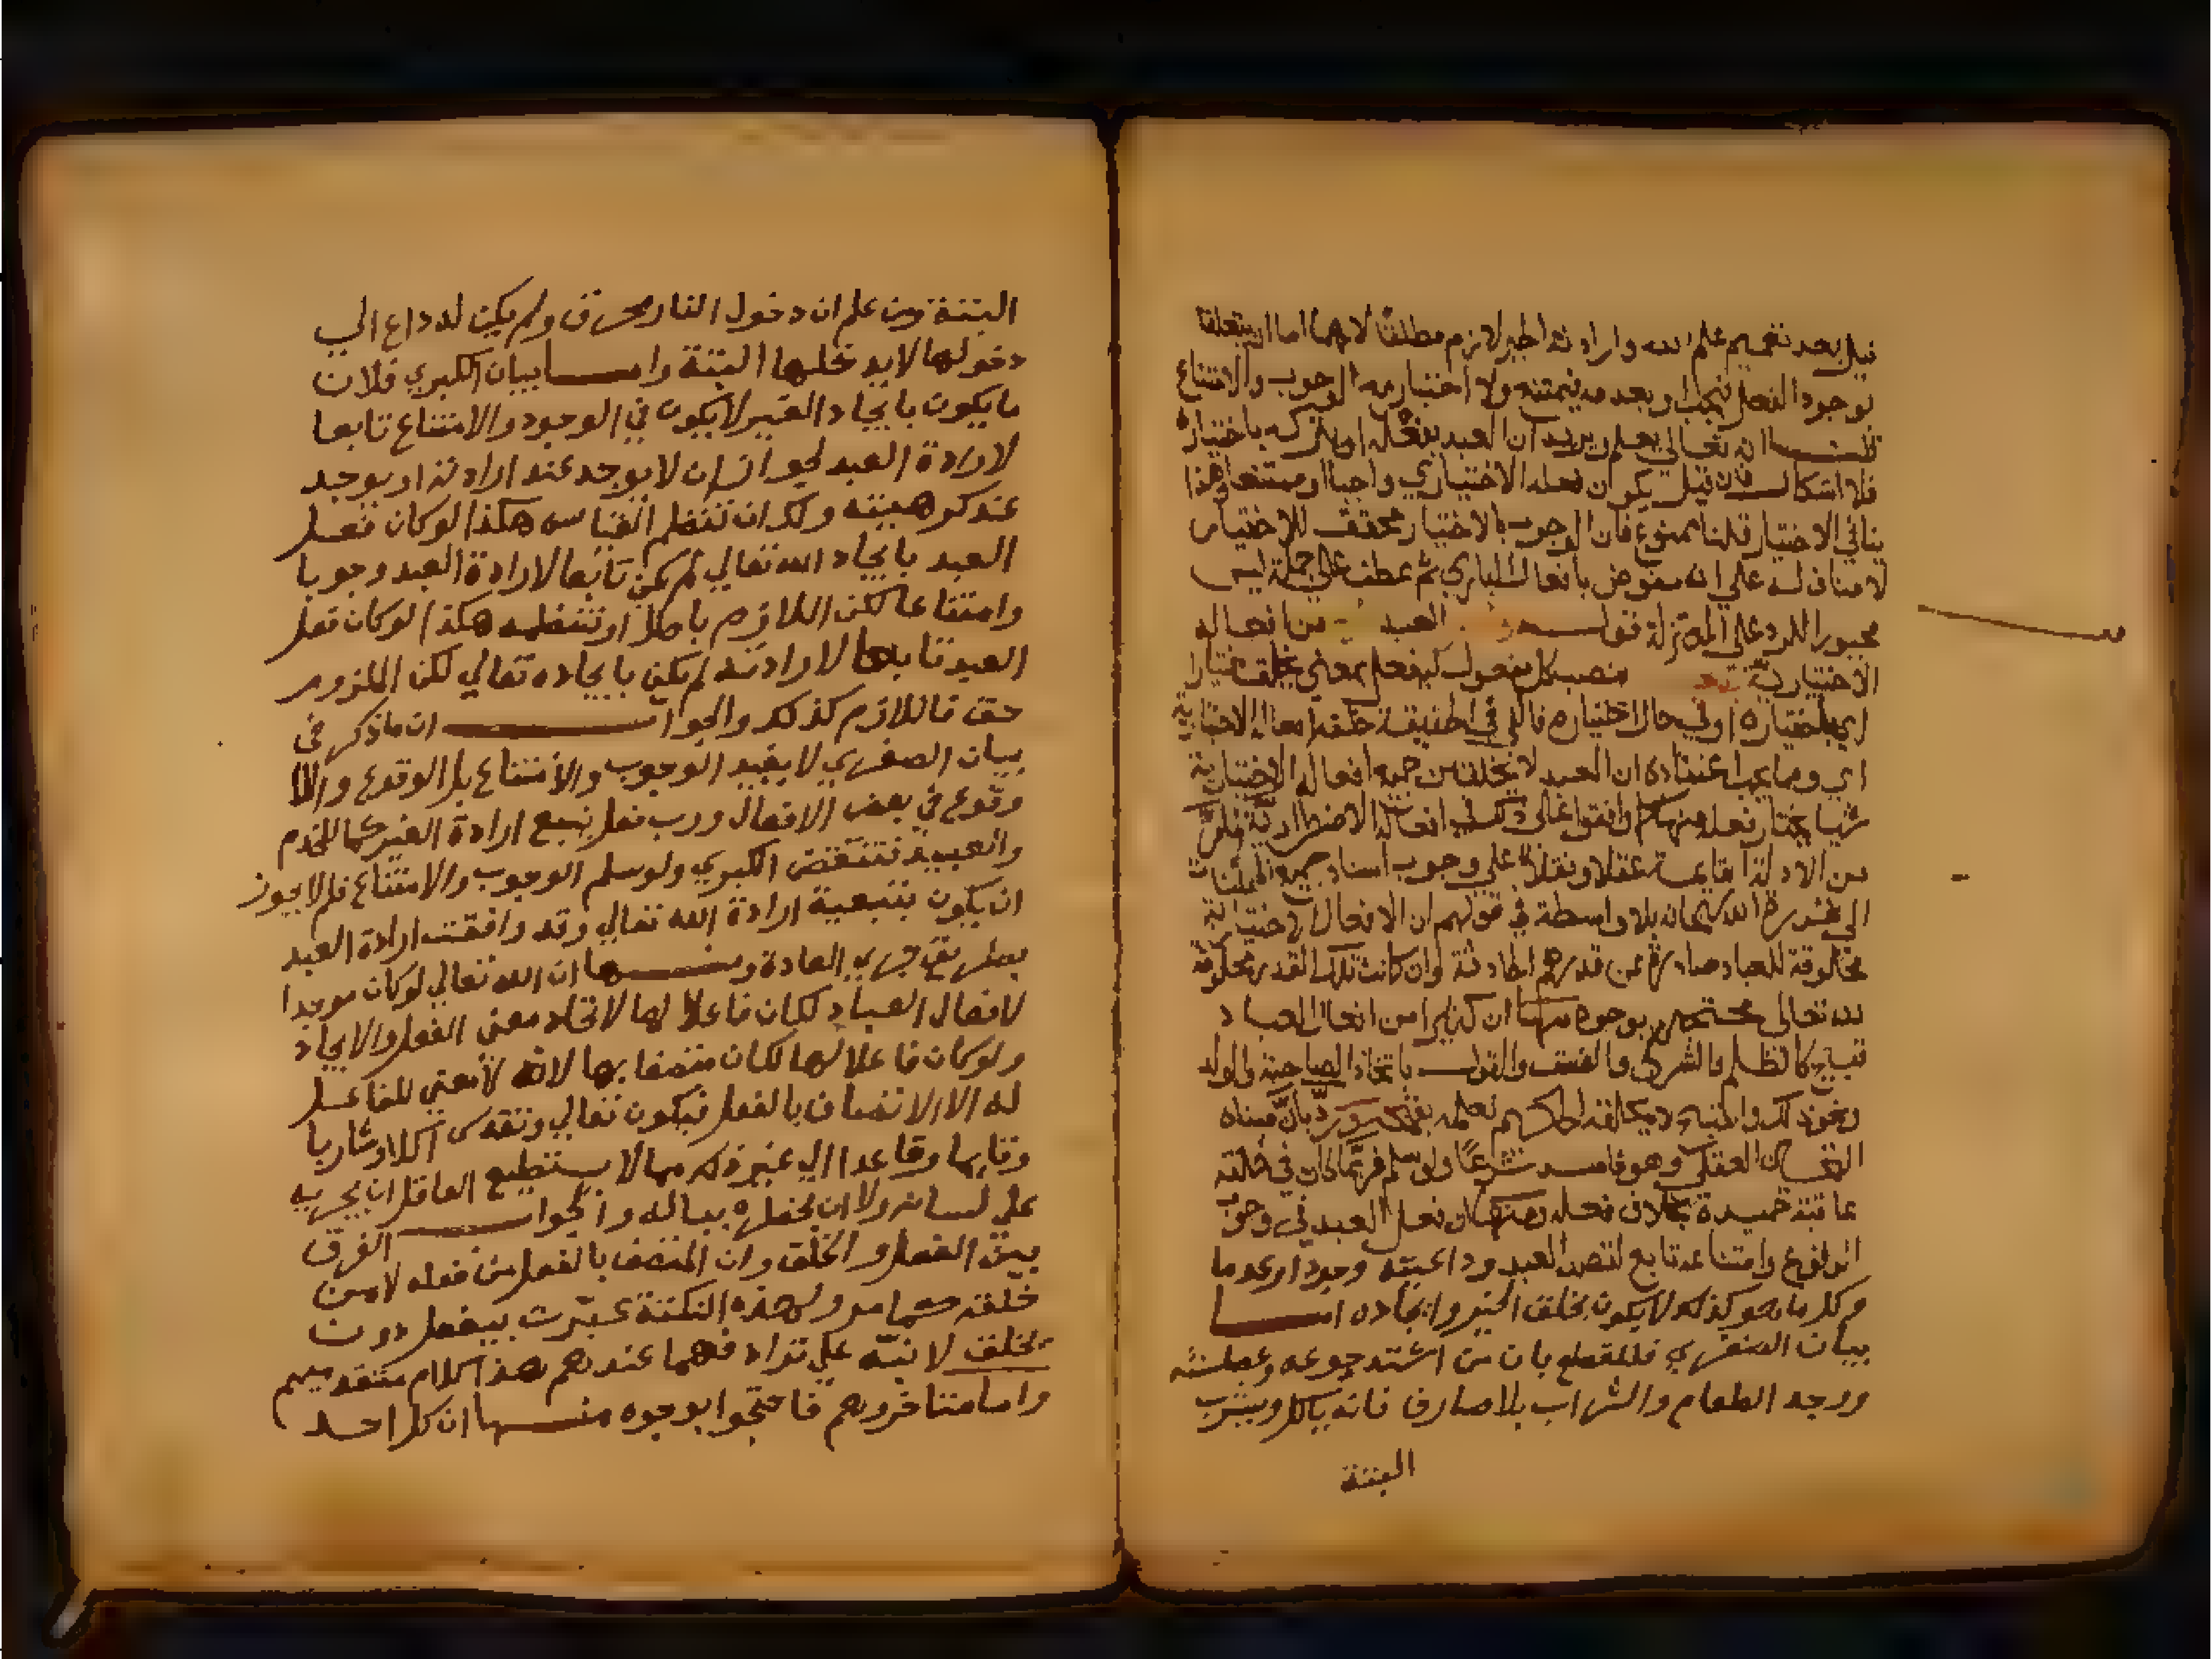 قيل بعد تعميم علم الله وارادته الجبر لازم مطلقا لانهما اما ان يتعلقا
بوجود الفعل فيجب او بعدمه فيمتنع ولا اختيار مع الوجوب والامتناع
قلنا انه تعالي يعلم ويريد ان العبد يفعله او يتركه باختياره
فلا اشكال فان قيل يكون فعله الاختياري واجبا او ممتنعا وهذا
ينافي الاختيار قلنا ممنوع فان الوجوب بالاختيار محقق للاختيار
لا مناف له علي انه منقوض بافعال الباري ثم عطف علي جملة ليس
مجبورا للرد علي المعتزلة فقال العبد من افعاله
الاختيارية بنصب كل مفعول ليفعل بمعني يخلق
اي باختياره او في حال اختياره فالله في الحقيقة خلقه
اي ومما يجب اعتقاده ان العبد لا يخلق من جميع افعاله الاختيارية
شيا يختار فعله منها كما وافقوا علي ذلك في افعاله الاضطرارية
من الادلة القايمة عقلا ونقلا علي وجوب اسناد جميع الممكنات
الي قدرة الله سبحانه بلا واسطة في قولهم ان الافعال الاختيارية
مخلوقة للعباد صادرة عن قدرهم الحادثة وان كانت تلك القدر مخلوقة
لله تعالي محتجين بوجوه منها ان كثيرا من افعال العباد
قبيح كالظلم والشرك والفسق والقول باتخاذ الصاحبة والولد
ونحو ذلك والقبيح لا يخلقه الحكيم لعلمه بقبحه ورد بان مبناه
العقلي وهو فاسد شرعا ولو سلم فربما كان في خلقه
عاقبة حميدة بخلاف فعله ومنها ان فعل العبد في وجوب
الوقوع وامتناعه تابع لقصد العبد وداعيته وجودا وعدما
وكل ما هو كذلك لا يكون بخلق الغير وايجاده اما
بيان الصغري فللقطع بان من اشتد جوعه وعطشه
ووجد الطعام والشراب بلا صارف فانه ياكل ويشرب
البتة
البتة ومن علم ان دخول النار محرق ولم يكن له داع الي
دخولها لا يدخلها البتة واما بيان الكبري فلان
ما يكون بايجاد الغير لا يكون في الوجود والامتناع تابعا
لارادة العبد لجواز ان لا يوجد عند ارادته او يوجد
عند كراهيته ولك ان تنظم القياس هكذا لو كان فعل
العبد بايجاد الله تعالي لم يكن تابعا لارادة العبد وجوبا
وامتناعا لكن اللازم باطل او تنظمه هكذا لو كان فعل
العبد تابعا لارادته لم يكن بايجاده تعالي لكن الملزوم
حق فاللازم كذلك والجواب ان ما ذكر في
بيان الصغري لا يفيد الوجوب والامتناع بل الوقوع واللا
وقوع في بعض الافعال ورب فعل يتبع ارادة الغير كما للخدم
والعبيد فتنتقض الكبري ولو سلم الوجوب والامتناع فلم لا يجوز
ان يكون بتبعية ارادة الله تعالي وقد وافقت ارادة العبد
بطريق جري العادة ومنها ان الله تعالي لو كان موجدا
لافعال العباد لكان فاعلا لها لاتحاد معني الفعل والايجاد
ولو كان فاعلا لها لكان متصفا بها لانه لا معني للفاعل
له الا الاتصاف بالفعل فيكون تعالي وتقدس آكلا وشاربا
وقايما وقاعدا الي غير ذلك مما لا يستطيع العاقل ان يجريه
علي لسانه ولا ان يخطره بباله والجواب الفرق
بين الفعل والخلق وان المتصف بالفعل من فعله لا من
خلقه كما مر ولهذه النكتة عبرت بيفعل دون
يخلق لانبه علي ترادفهما عندهم هذا كلام متقدميهم
واما متاخروهم فاحتجوا بوجوه منها ان كل احد